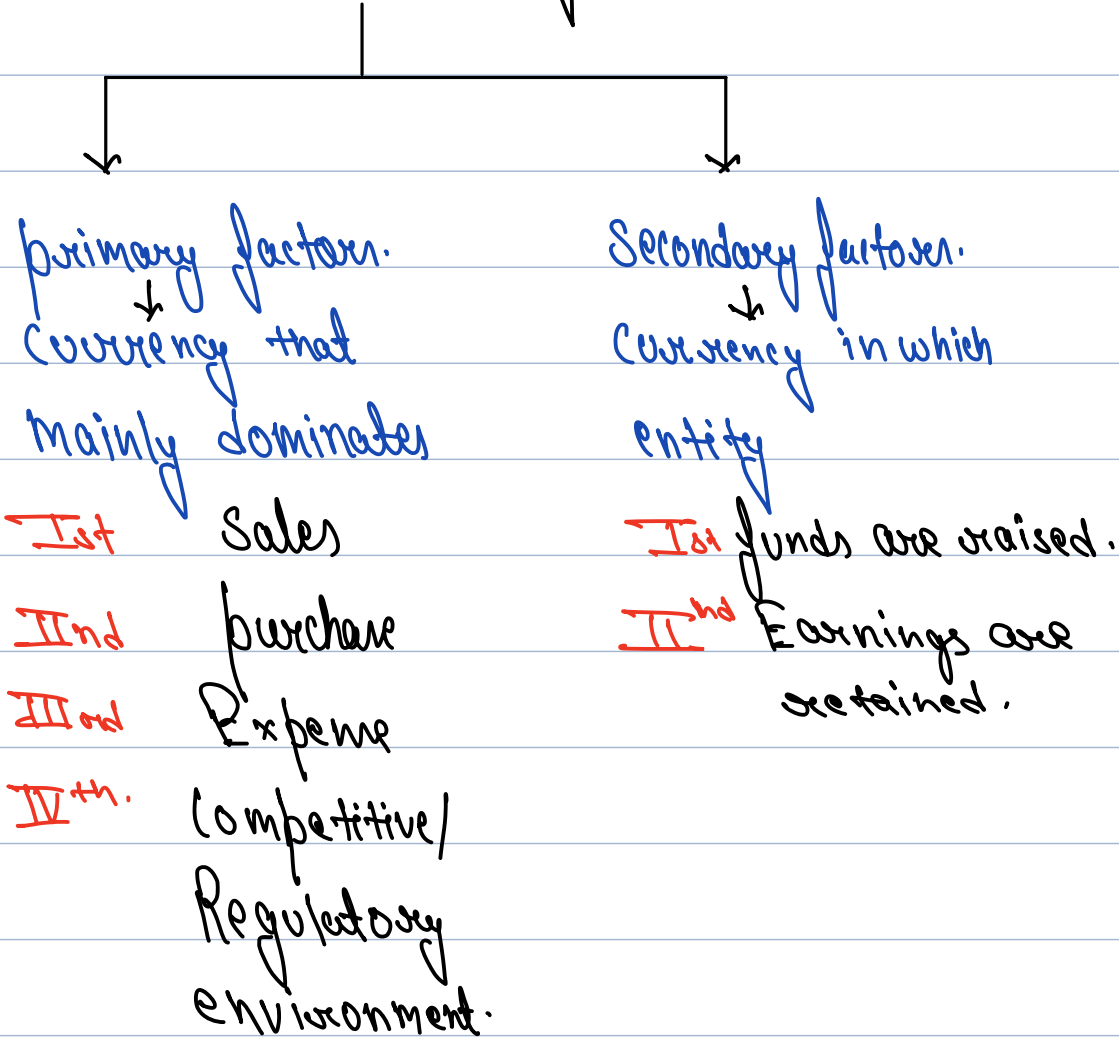 primary factors.
Currency that
mainly dominates
Ist Sales
IInd purchase
IIIrd Expense
IVth. Competitive/
Regulatory
environment.
Secondary factors.
Currency in which
entity
Ist funds are raised.
IInd Earnings are
retained.